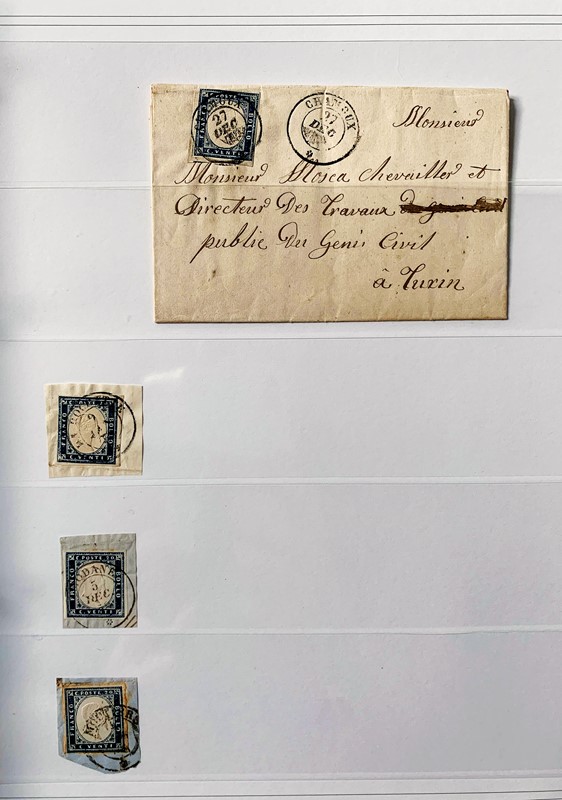 C. POSTE 20
FRANCO
BOLLO
C. VENTI
27
DEC
CHAMOUX
27
DEC
Monsieur
Monsieur Mosca Chevailler et
Directeur Des Travaux
public Du Genie Civil
à Turin
FRANCO
BOLLO
C. VENTI
C. POSTE 20
FRANCO
BOLLO
C. VENTI
MODANE
5
DEC
C. POSTE 20
FRANCO
BOLLO
C. VENTI